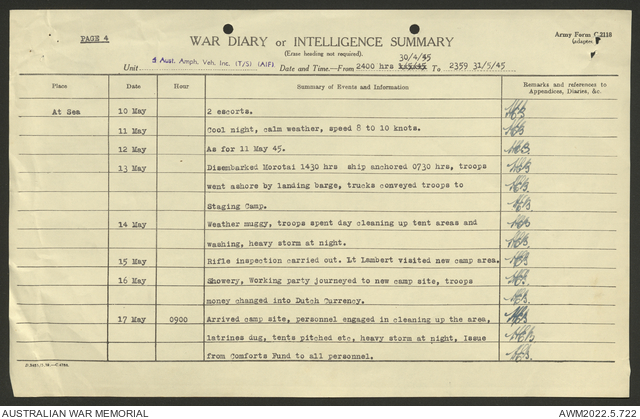 PAGE 4
WAR DIARY or INTELLIGENCE SUMMARY
Army Form C.2118
(Erase heading not required).
30/4/45
Unit Aust. Amph. Veh. Inc. (T/S) (AIF). Date and Time.—From 2400 hrs To 2359 31/5/45
Place Date Hour Summary of Events and Information Remarks and references to Appendices, Diaries, &c.
At Sea 10 May 2 escorts.
11 May Cool night, calm weather, speed 8 to 10 knots.
12 May As for 11 May 45.
13 May Disembarked Morotai 1430 hrs ship anchored 0730 hrs, troops
went ashore by landing barge, trucks conveyed troops to
Staging Camp.
14 May Weather muggy, troops spent day cleaning up tent areas and
washing, heavy storm at night.
15 May Rifle inspection carried out. Lt Lambert visited new camp area.
16 May Showery, Working party journeyed to new camp site, troops
money changed into Dutch Currency.
17 May 0900 Arrived camp site, personnel engaged in cleaning up the area,
latrines dug, tents pitched etc, heavy storm at night, Issue
from Comforts Fund to all personnel.
AUSTRALIAN WAR MEMORIAL
AWM2022.5.722